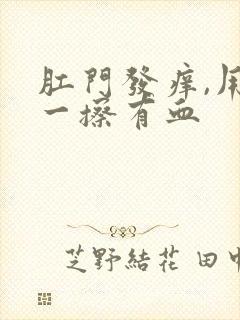 肛門發痒,用
一擦有血
芝野結花 田中